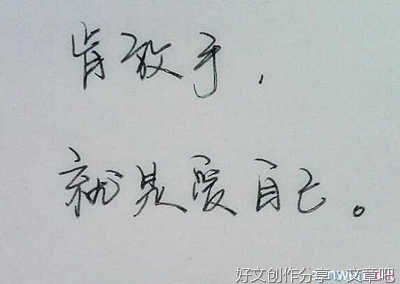 肯放手，
就是爱自己。
好文创作分享—文章吧